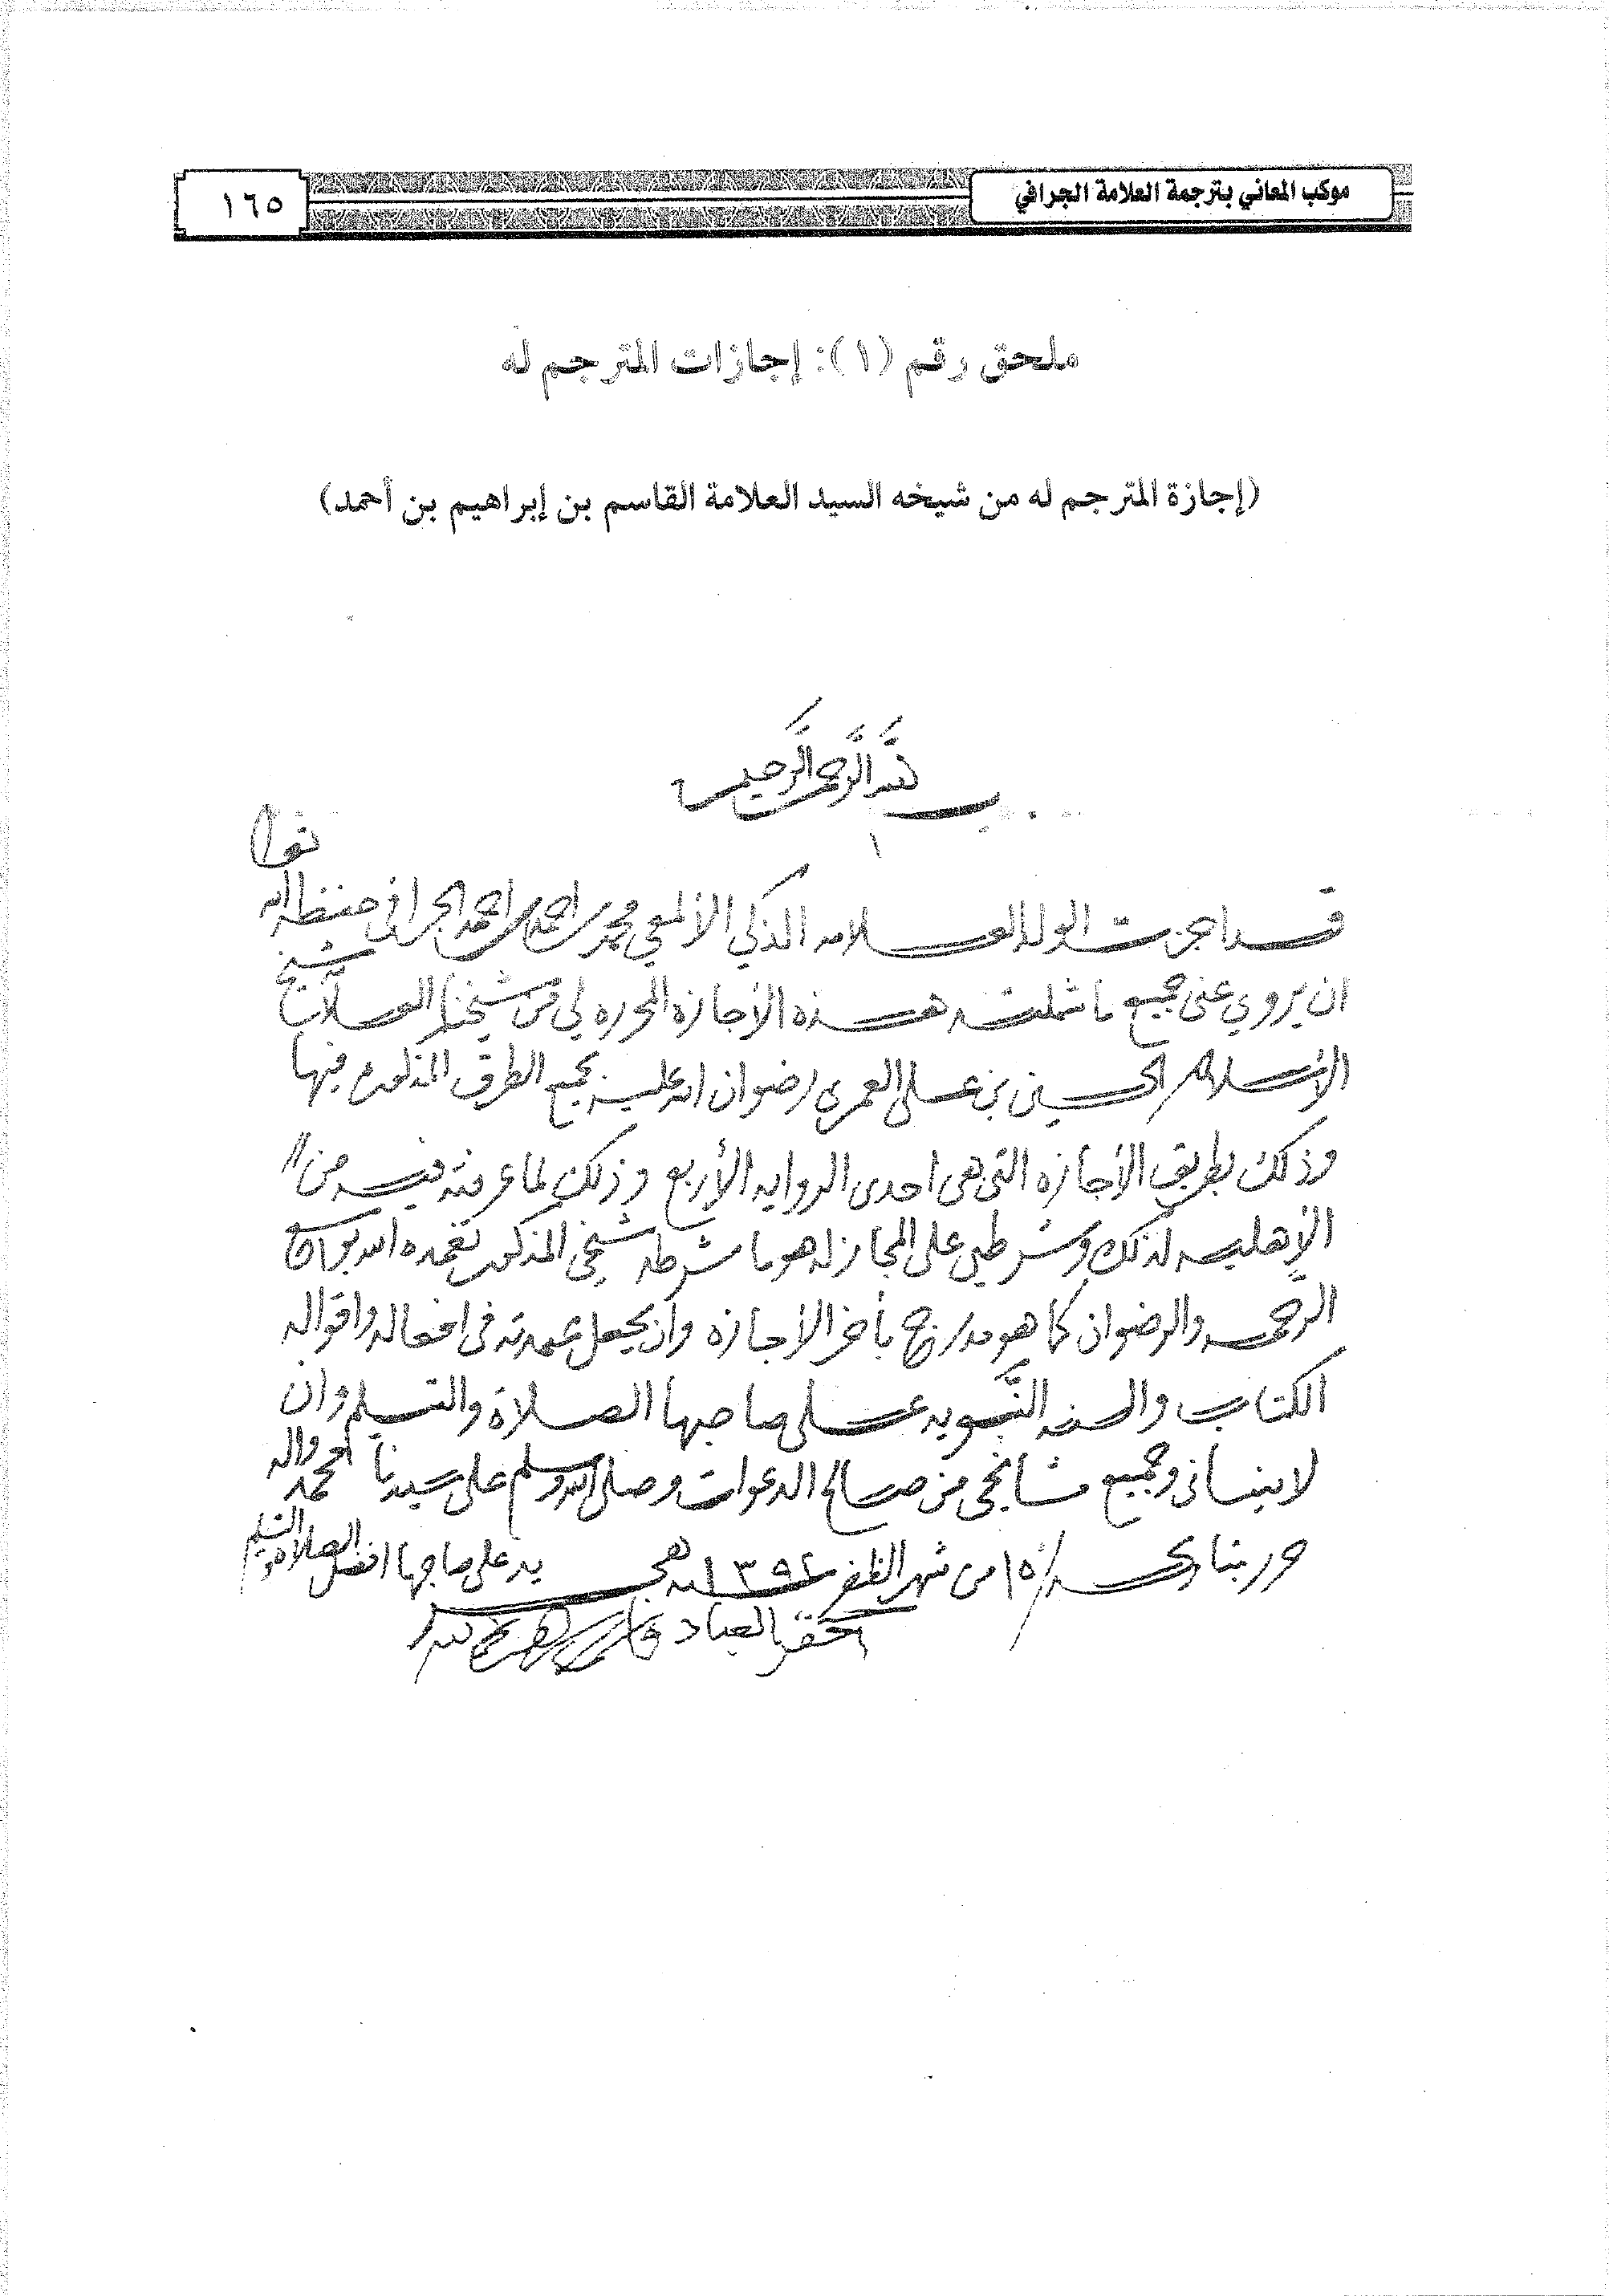 موكب المعاني بترجمة العلامة الجرافي
١٦٥
ملحق رقم (١): إجازات المترجم له
(إجازة المترجم له من شيخه السيد العلامة القاسم بن إبراهيم بن أحمد)
بسم الله الرحمن الرحيم
قد اجزت الولد العلامه الذكي الألمعي محمد بن احمد بن احمد الجرافي حفظه الله تعالى
ان يروي عني جميع ما شملته هذه الأجازة المحرره لي من شيخنا شيخ
الأسلام الحسين بن علي العمري رضوان الله عليه بجميع الطرق المذكوره فيها
وذلك بطريق الأجازه التي هي احدى الروايه الأربع وذلك لما عرفته فيه من
الأهليه لذلك وشرطي على المجاز له هو ما شرطه شيخي المذكور تغمده الله
الرحمه والرضوان كما هو مدرج بأخر الأجازه وان يجعل عمدته في افعاله واقواله
الكتاب والسنه النبويه على صاحبها الصلاة والتسليم وان
لا ينساني وجميع مشايخي من صالح الدعوات وصلى الله وسلم على سيدنا محمد واله
حرر بتاريخه /١٥ من شهر الظفر سنه ١٣٩٢ هجريه على صاحبها افضل الصلاة والتسليم
احقر العباد